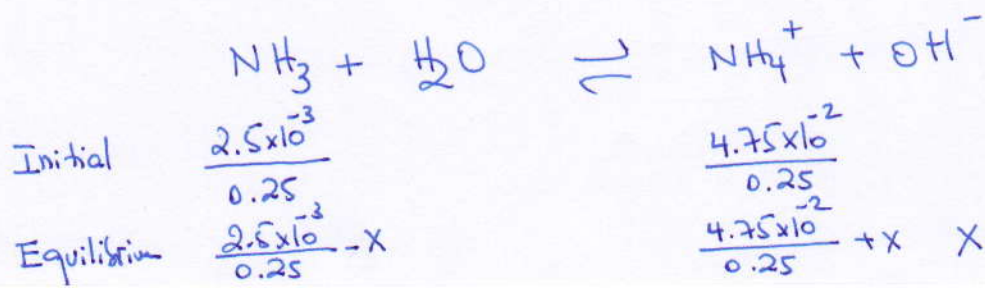 NH₃ + H₂O ⇌ NH₄⁺ + OH⁻
Initial 2.5x10⁻³/0.25 4.75x10⁻²/0.25
Equilibrium 2.5x10⁻³/0.25 -X 4.75x10⁻²/0.25 +X X